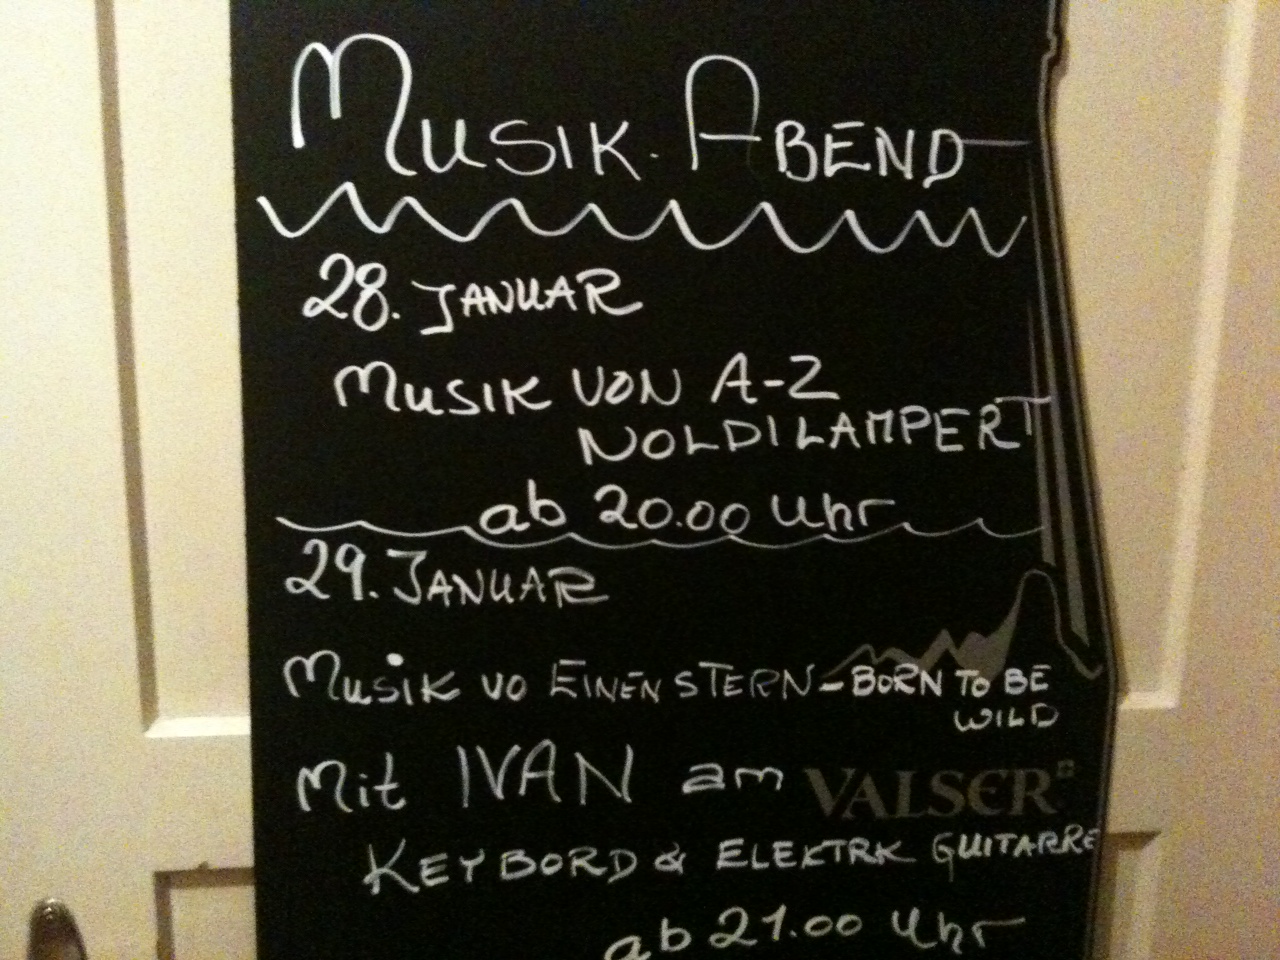 MUSIK-ABEND
28. JANUAR
MUSIK VON A-Z
NOLDI LAMPERT
ab 20.00 Uhr
29. JANUAR
MUSIK VO EINEN STERN - BORN TO BE
WILD
Mit IVAN am
VALSER
KEYBORD & ELEKTRK GUITARRE
ab 21.00 Uhr